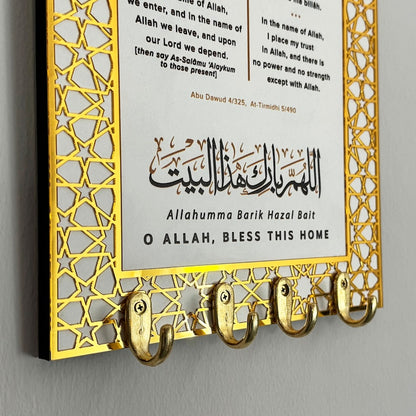 name of Allah,
we enter, and in the name of
Allah we leave, and upon
our Lord we depend.
[then say As-Salāmu 'Alaykum
to those present]
billāh.
***
In the name of Allah,
I place my trust
in Allah, and there is
no power and no strength
except with Allah.
Abu Dawud 4/325, At-Tirmidhi 5/490
اللهم بارك هذا البيت
Allahumma Barik Hazal Bait
O ALLAH, BLESS THIS HOME